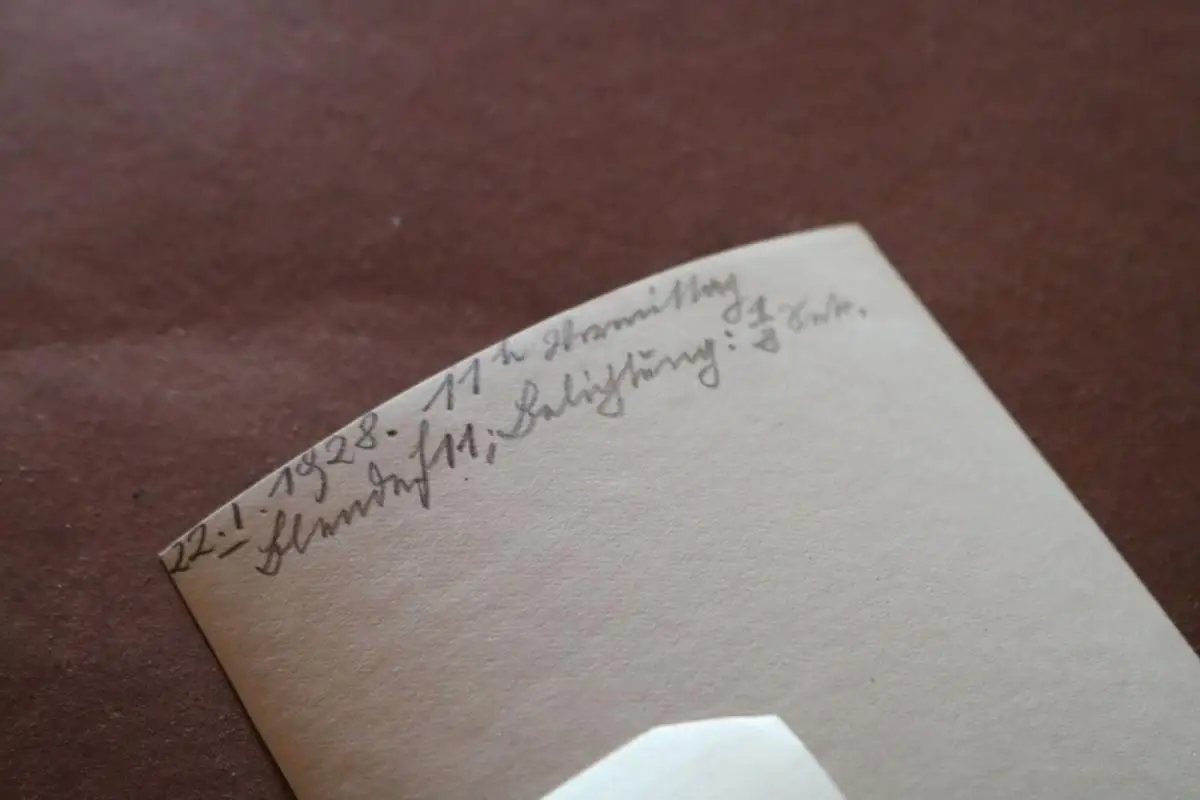 22.I.1928. 11h Vormittag
Blende f11; Belichtung: 1/2 Sek.